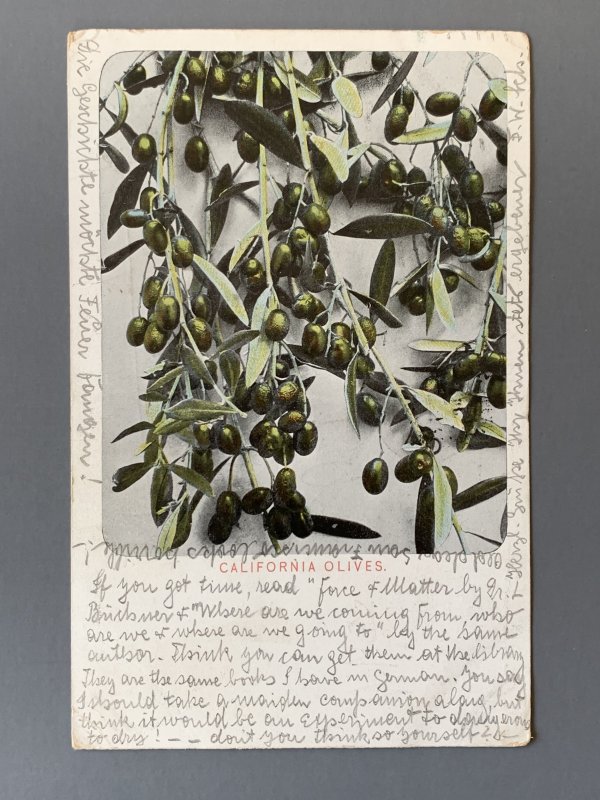 Die Geschichte möchte Feuer fangen!
Herzl. Grüße Ihr Ihnen stets ergebener
CALIFORNIA OLIVES.
If you got time, read "Force & Matter by Dr.
Büchner & "Where are we coming from, who
are we & where are we going to" by the same
author. Think you can get them at the library
They are the same books I have in German. You say
I should take a maiden companion along, but
think it would be an Experiment to dangerous
to dry! — — don't you think so yourself?